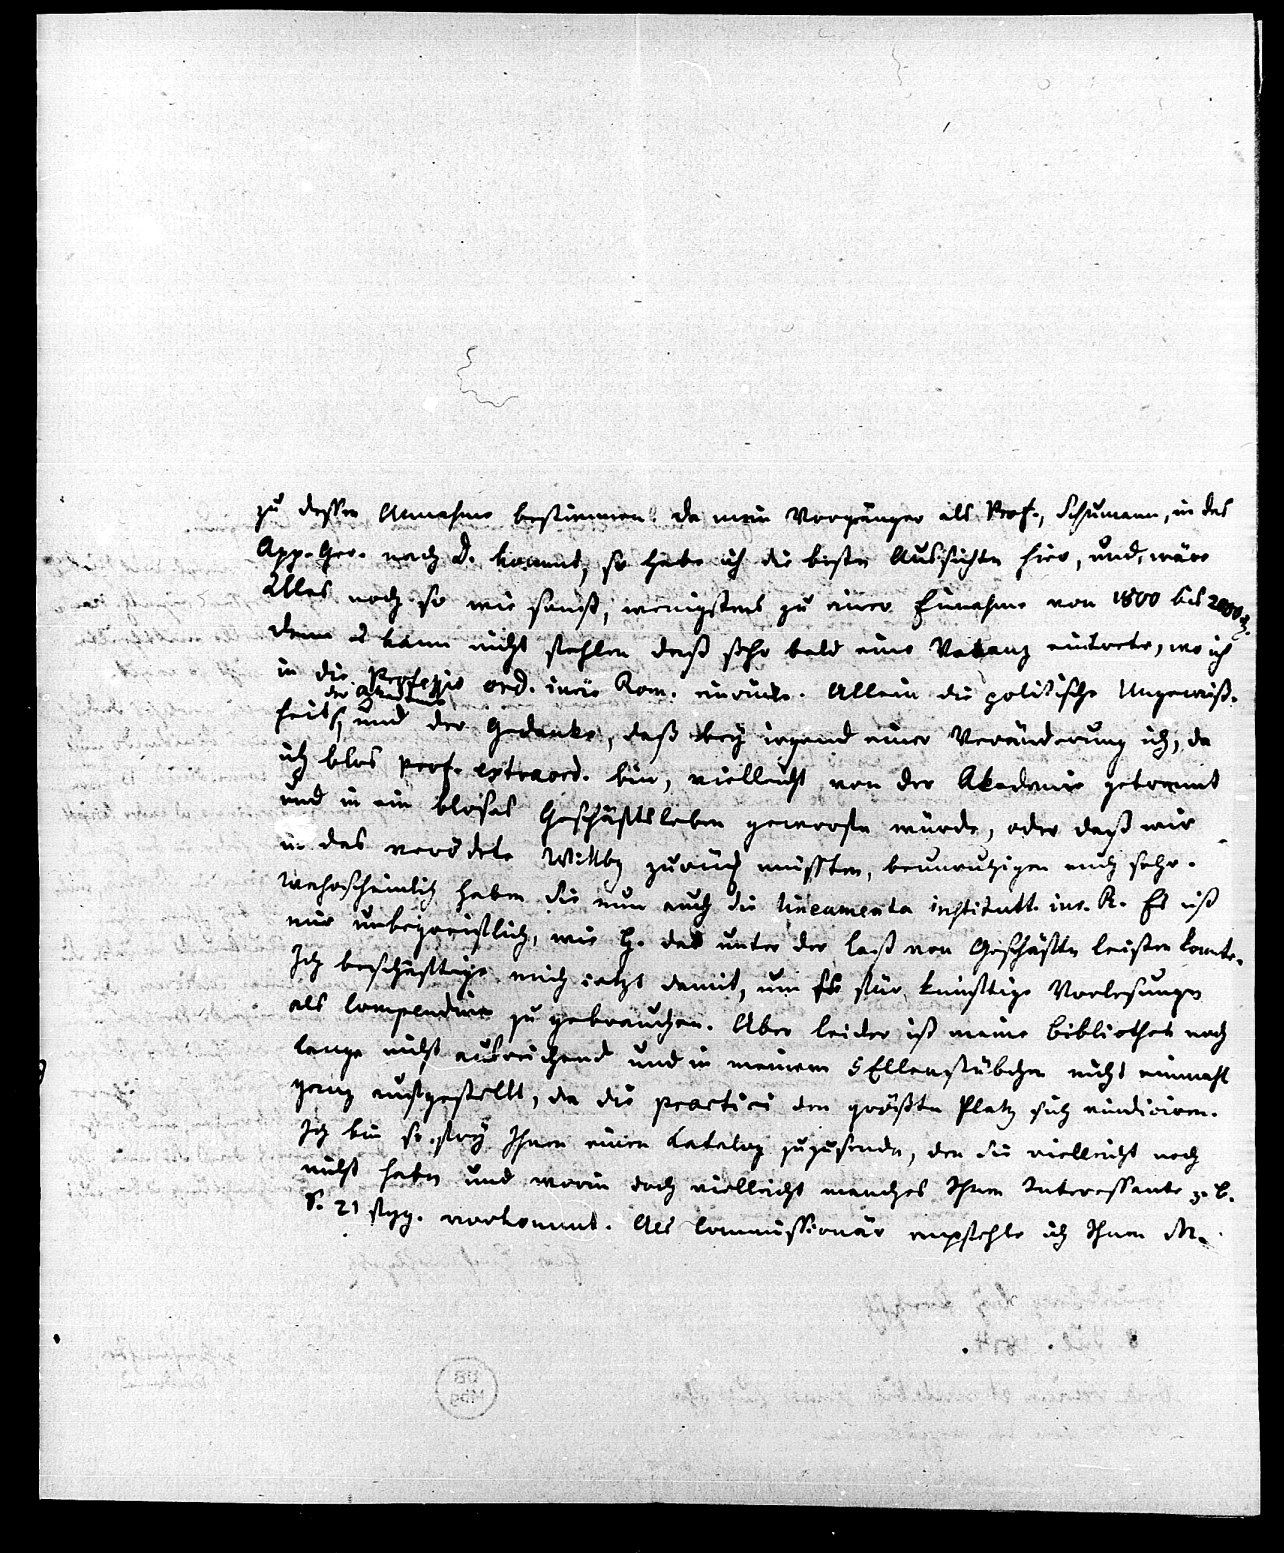 zu dessen Annahme bestimmen. Da mein Vorgänger als Prof., Schumann, in das
App. Ger. nach D. kommt, so habe ich die besten Aussichten hier, und, wäre
Alles noch so wie sonst, wenigstens zu einer Einnahme von 1800 bis 2000
denn es kann nicht fehlen daß sehr bald eine Vakanz eintrete, wo ich
in die Professio ord. iuris Rom. einrücke. Allein die politische Ungewiß-
heit, und der Gedanke, daß bey irgend einer Veränderung ich, da
ich blos prof. extraord. bin, vielleicht von der Akademie getrennt
und in ein bloses Geschäftsleben geworfen würde, oder daß wir
in das verödete Wittbg zurück müssten, beunruhigen mich sehr.
Wahrscheinlich haben Sie nun auch die lineamenta institutt. iur. R. Es ist
mir unbegreiflich, wie H. das unter der Last von Geschäften leisten konnte.
Ich beschäftige mich jetzt damit, um es für künftige Vorlesungen
als Compendium zu gebrauchen. Aber leider ist meine Bibliothek noch
lange nicht ausreichend und in meinem 5 Ellenstübchen nicht einmahl
ganz aufgestellt, da die practici den größten Platz sich vindiciren.
Ich bin so frey Ihnen einen Katalog zuzusenden, den Sie vielleicht noch
nicht haben und worin doch vielleicht manches Ihnen Interessante z. B.
S. 21 fgg. vorkommt. Als Commissionär empfehle ich Ihnen M.
UB
Mbg